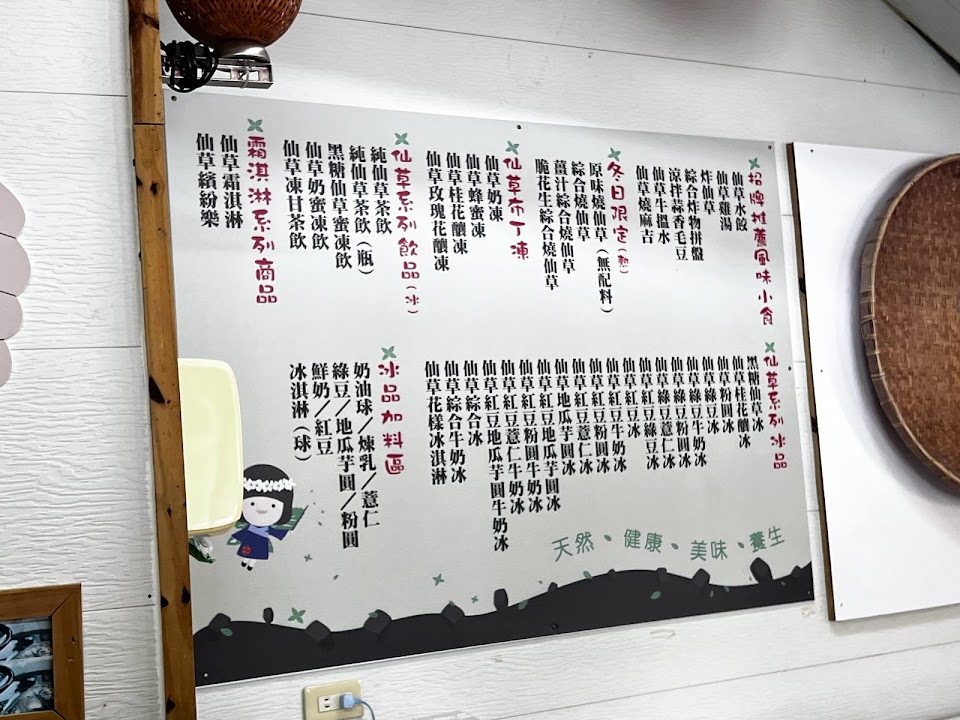 招牌推薦風味小食
仙草水餃
仙草雞湯
炸仙草
綜合炸物拼盤
涼拌蒜香毛豆
仙草牛搵水
仙草燒麻吉
冬日限定(熱)
原味燒仙草(無配料)
綜合燒仙草
薑汁綜合燒仙草
脆花生綜合燒仙草
仙草布丁凍
仙草奶凍
仙草蜂蜜凍
仙草桂花釀凍
仙草玫瑰花釀凍
仙草系列飲品(冰)
純仙草茶飲
純仙草茶飲(瓶)
黑糖仙草蜜凍飲
仙草奶蜜凍飲
仙草凍甘茶飲
霜淇淋系列商品
仙草霜淇淋
仙草繽紛樂
仙草系列冰品
黑糖仙草冰
仙草桂花釀冰
仙草粉圓冰
仙草綠豆冰
仙草綠豆牛奶冰
仙草綠豆粉圓冰
仙草綠豆薏仁冰
仙草紅豆綠豆冰
仙草紅豆冰
仙草紅豆牛奶冰
仙草紅豆粉圓冰
仙草紅豆薏仁冰
仙草地瓜芋圓冰
仙草紅豆地瓜芋圓冰
仙草紅豆粉圓牛奶冰
仙草紅豆薏仁牛奶冰
仙草紅豆地瓜芋圓牛奶冰
仙草綜合冰
仙草綜合牛奶冰
仙草花樣冰淇淋
冰品加料區
奶油球／煉乳／薏仁
綠豆／地瓜芋圓／粉圓
鮮奶／紅豆
冰淇淋(球)
天然、健康、美味、養生